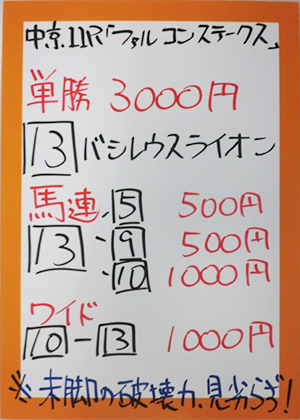 中京11R「ファルコンステークス」
単勝 3000円
13 バシレウスライオン
馬連 5 500円
13 - 9 500円
10 1000円
ワイド
10-13 1000円
※末脚の破壊力、見劣らず!